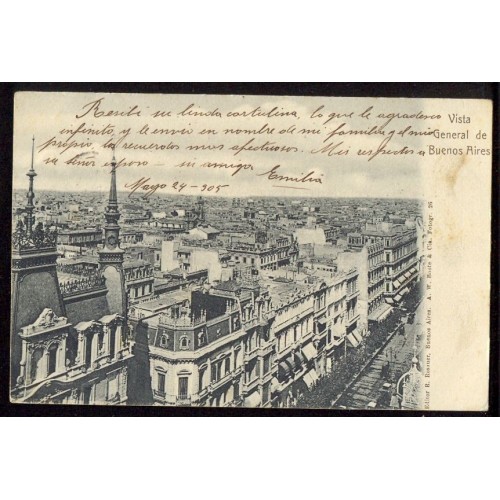 Recibí su linda cartulina, lo que le agradezco
infinito, y le envio en nombre de mi familia y el mio
propio, los recuerdos mas afectuosos. Mis respectos a
su Señor esposo – su amiga
Emilia
Mayo 24 - 905
Vista
General de
Buenos Aires
Editor R. Rosauer, Buenos Aires. A. W. Boote & Cía. Fotogr. 26